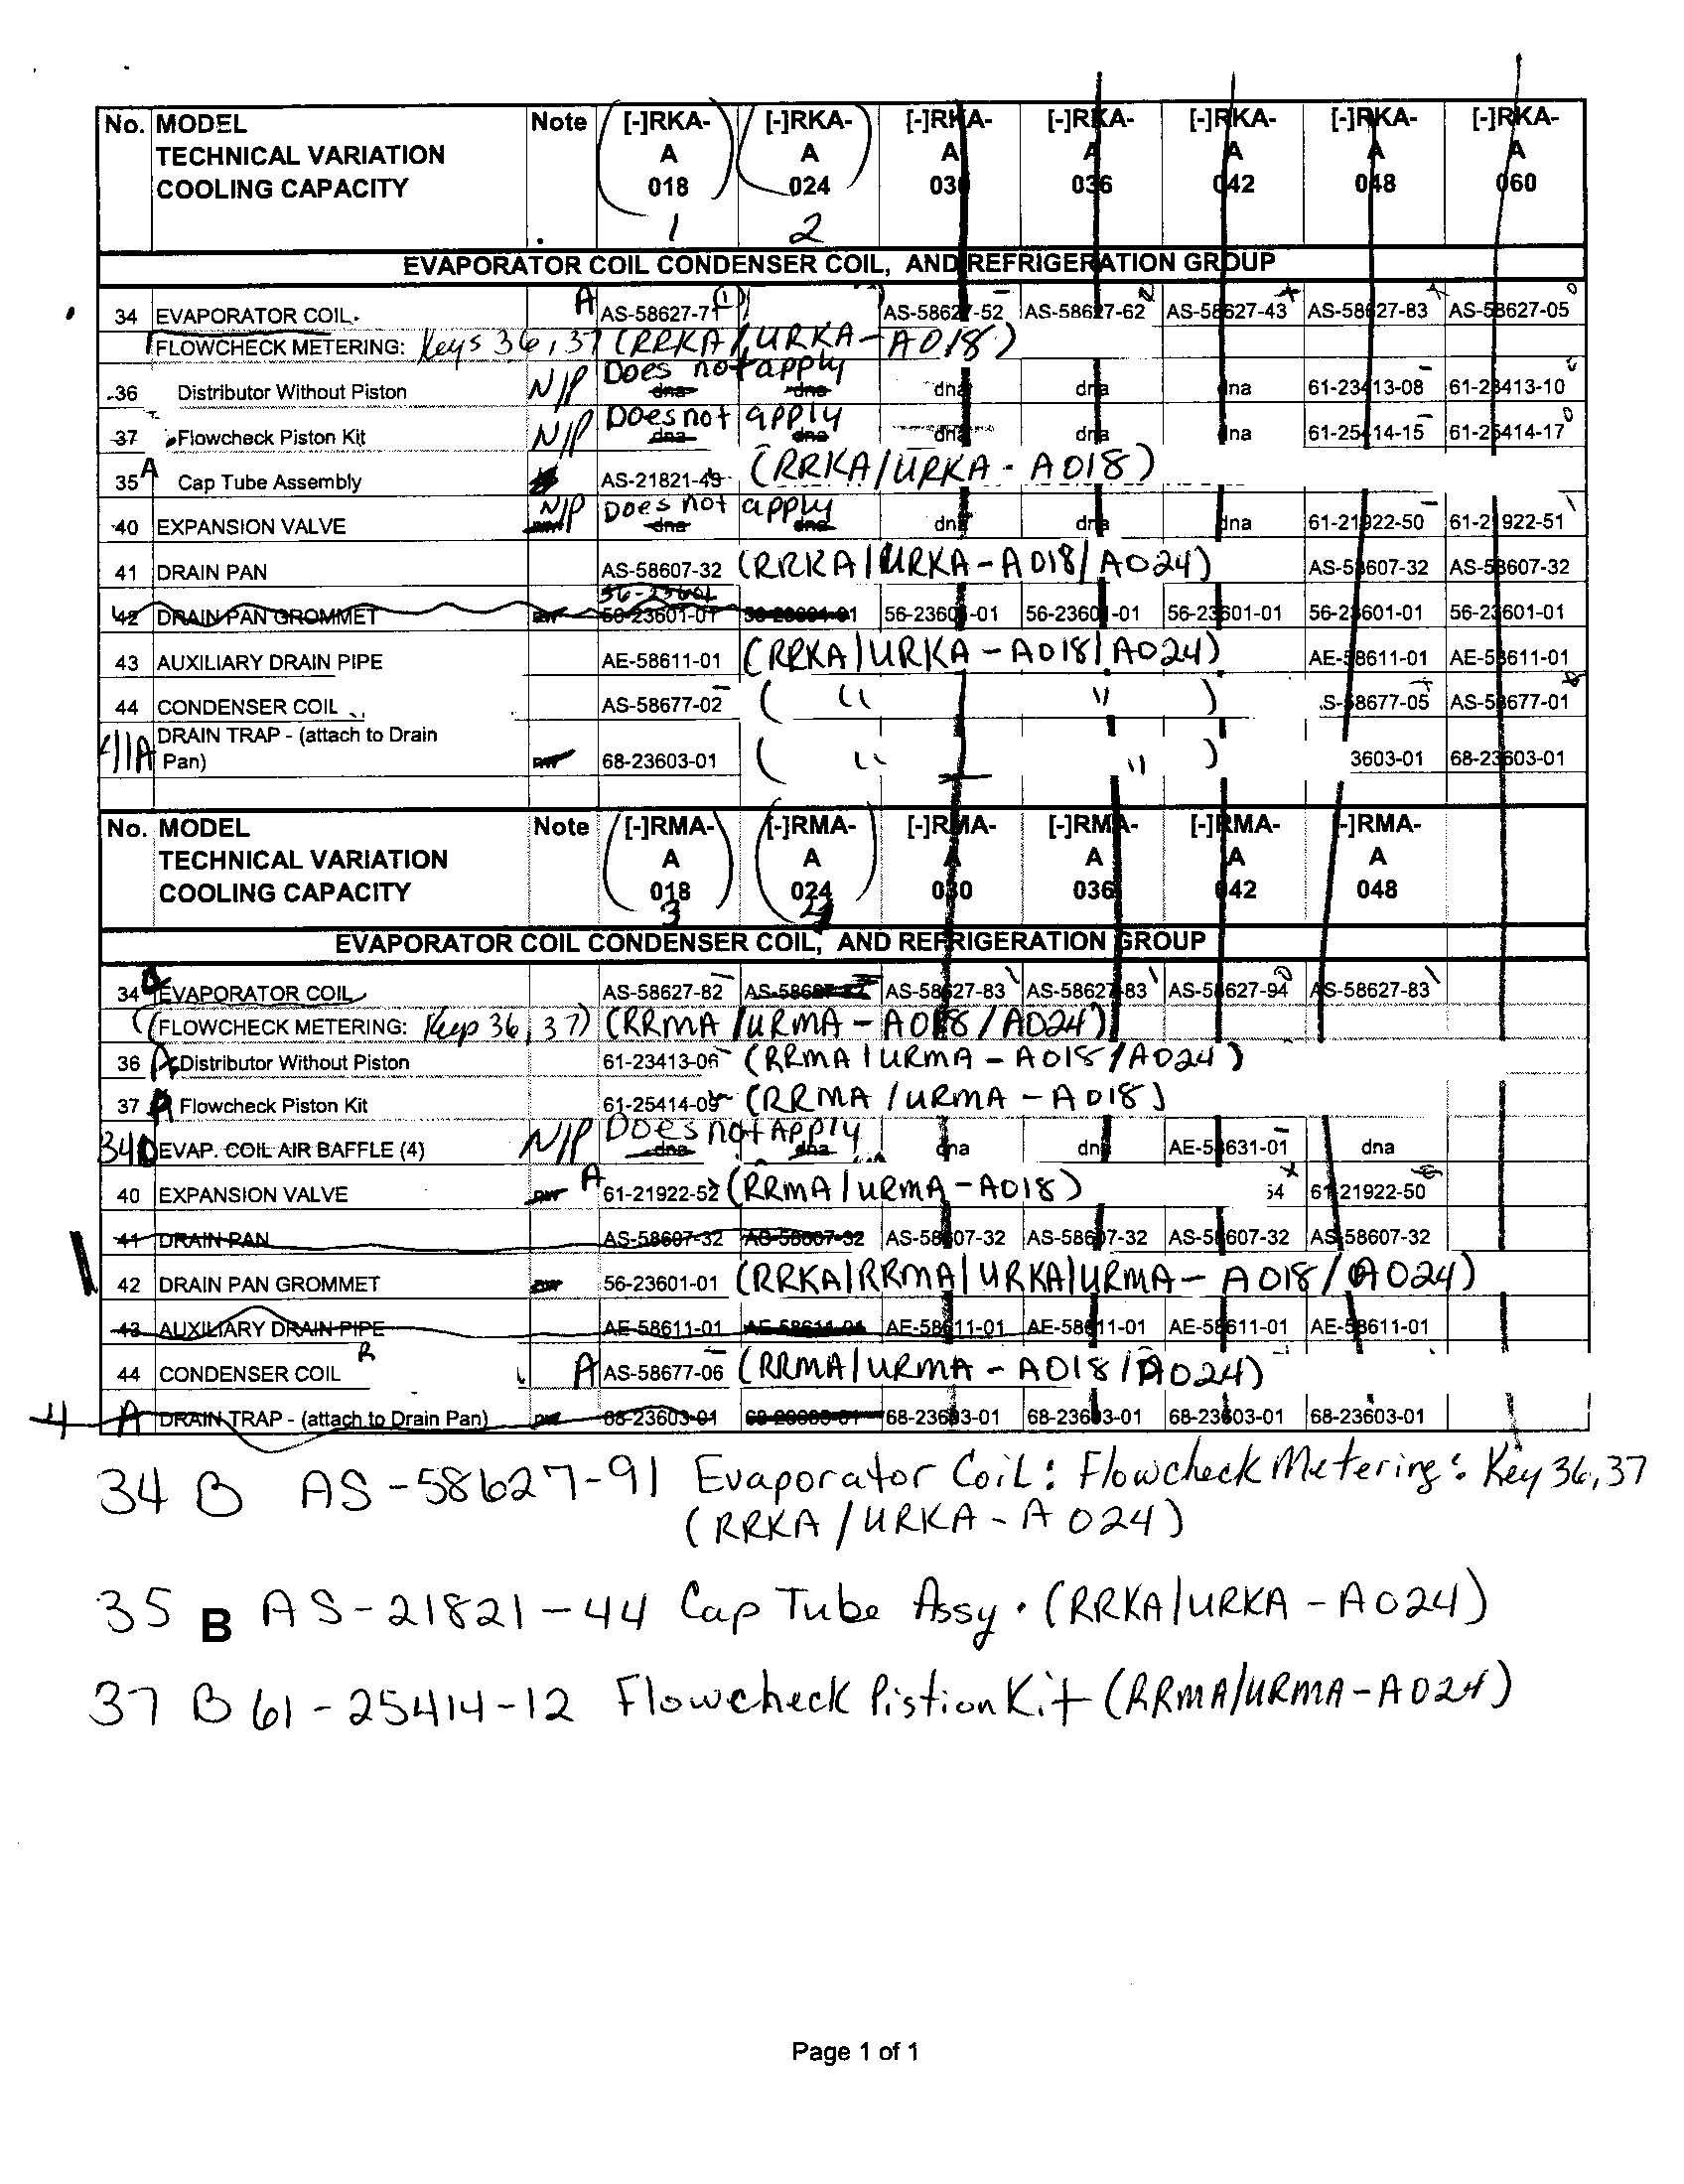 No. MODEL Note [-]RKA- [-]RKA- [-]RKA- [-]RKA- [-]RKA- [-]RKA- [-]RKA-
TECHNICAL VARIATION A A A A A A A
COOLING CAPACITY 018 024 030 036 042 048 060
1 2
EVAPORATOR COIL CONDENSER COIL, AND REFRIGERATION GROUP
34 EVAPORATOR COIL. A AS-58627-71 AS-58627-52 AS-58627-62 AS-58627-43 AS-58627-83 AS-58627-05
FLOWCHECK METERING: Keys 36, 37 (RRKA/URKA-A018)
36 Distributor Without Piston N/P Does not apply dna dna dna dna dna 61-23413-08 61-23413-10
37 Flowcheck Piston Kit N/P Does not apply dna dna dna dna dna 61-25414-15 61-25414-17
35 A Cap Tube Assembly AS-21821-43 (RRKA/URKA-A018)
40 EXPANSION VALVE N/P Does not apply dna dna dna dna dna 61-21922-50 61-21922-51
41 DRAIN PAN AS-58607-32 (RRKA/URKA-A018/A024) AS-58607-32 AS-58607-32
56-23601
42 DRAIN PAN GROMMET 56-23601-01 56-23601-01 56-23601-01 56-23601-01 56-23601-01 56-23601-01 56-23601-01
43 AUXILIARY DRAIN PIPE AE-58611-01 (RRKA/URKA-A018/A024) AE-58611-01 AE-58611-01
44 CONDENSER COIL AS-58677-02 ( " " ) S-58677-05 AS-58677-01
DRAIN TRAP - (attach to Drain
41A Pan) 68-23603-01 ( " " ) 3603-01 68-23603-01
No. MODEL Note [-]RMA- [-]RMA- [-]RMA- [-]RMA- [-]RMA- [-]RMA-
TECHNICAL VARIATION A A A A A A
COOLING CAPACITY 018 024 030 036 042 048
3 4
EVAPORATOR COIL CONDENSER COIL, AND REFRIGERATION GROUP
34 EVAPORATOR COIL AS-58627-82 AS-58627-82 AS-58627-83 AS-58627-83 AS-58627-94 AS-58627-83
(FLOWCHECK METERING: Keys 36, 37) (RRMA/URMA-A018/A024)
36 A Distributor Without Piston 61-23413-06 (RRMA/URMA-A018/A024)
37 A Flowcheck Piston Kit 61-25414-09 (RRMA/URMA-A018)
34D EVAP. COIL AIR BAFFLE (4) N/P Does not Apply dna dna dna dna AE-58631-01 dna
40 EXPANSION VALVE A 61-21922-52 (RRMA/URMA-A018) 54 61-21922-50
41 DRAIN PAN AS-58607-32 AS-58607-32 AS-58607-32 AS-58607-32 AS-58607-32 AS-58607-32
42 DRAIN PAN GROMMET 56-23601-01 (RRKA/RRMA/URKA/URMA-A018/A024)
43 AUXILIARY DRAIN PIPE AE-58611-01 AE-58611-01 AE-58611-01 AE-58611-01 AE-58611-01 AE-58611-01
44 CONDENSER COIL A AS-58677-06 (RRMA/URMA-A018/A024)
4 A DRAIN TRAP - (attach to Drain Pan) 68-23603-01 68-23603-01 68-23603-01 68-23603-01 68-23603-01 68-23603-01
34 B AS-58627-91 Evaporator Coil: Flowcheck Metering: Key 36, 37
(RRKA/URKA-A024)
35 B AS-21821-44 Cap Tube Assy. (RRKA/URKA-A024)
37 B 61-25414-12 Flowcheck Pistion Kit (RRMA/URMA-A024)
Page 1 of 1